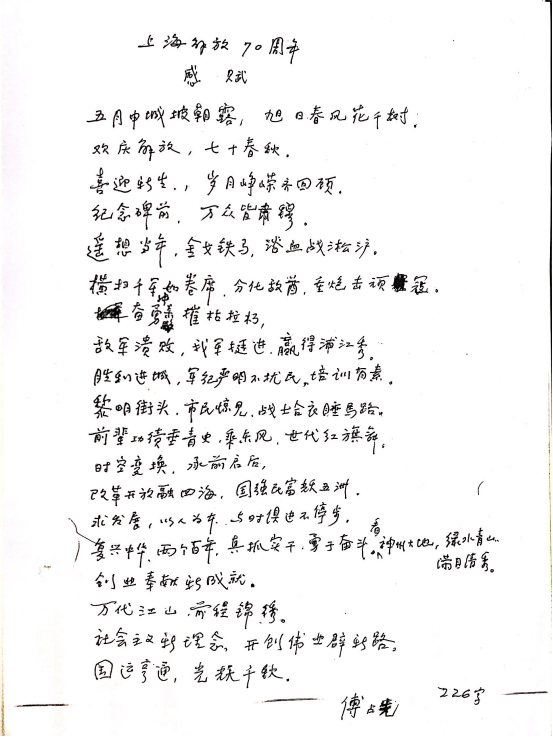 上海解放70周年
感赋
五月申城披朝露，旭日春风花千树．
欢庆解放，七十春秋．
喜迎新生．，岁月峥嵘齐回顾．
纪念碑前，万众皆肃穆．
遥想当年，金戈铁马，浴血战淞沪．
横扫千军如卷席，分化敌酋，重炮击顽寇。
奋勇 摧枯拉朽，
敌军溃败，我军挺进，赢得浦江秀。
胜利进城，军纪严明不扰民。培训有素．
黎明街头，市民惊见，战士合衣睡马路。
前辈功绩垂青史，乘东风，世代红旗舞。
时空变换，承前启后，
改革开放融四海，国强民富耀五洲．
求发展，以人为本，与时俱进不停步．
复兴中华，两个百年，真抓实干，勇于奋斗。看神州大地，绿水青山
满目清秀。
创业奉献新成就。
万代江山，前程锦绣。
社会主义新理念，开创伟业辟新路。
国运亨通，光耀千秋．
226字
傅占先